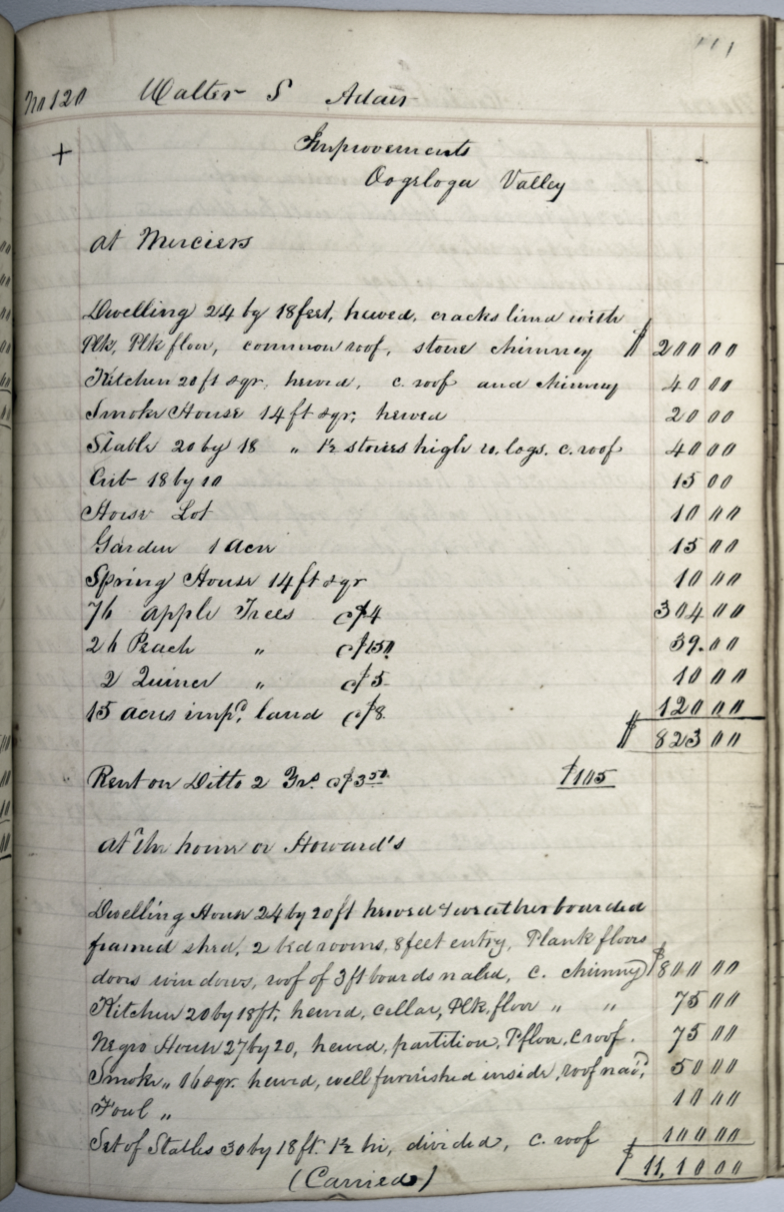 111
No 120 Walter S Adair
+ Improvements
Oogeloga Valley
at Merciers
Dwelling 24 by 18 feet, hewed, cracks lined with
Plk, Plk floor, common roof, stone chimney $ 200 00
Kitchen 20 ft sqr, hewed, c. roof and chimney 40 00
Smoke House 14 ft sqr, hewed 20 00
Stable 20 by 18 " 1½ stories high r. logs. c. roof 40 00
Crib 18 by 10 15 00
House Lot 10 00
Garden 1 acre 15 00
Spring House 14 ft sqr 10 00
76 apple Trees c$4 304.00
26 Peach " c$1 50 39.00
2 Quince " c$5 10 00
15 acres impd. land c$8 120 00
$ 823 00
Rent on Ditto 2 Yrs. c$3 50 $105
at the home or Howard's
Dwelling House 24 by 20 ft hewed & weather boarded
framed shed, 2 bed rooms, 8 feet entry, Plank floors
doors windows, roof of 3 ft boards naled, c. chimney $800 00
Kitchen 20 by 18 ft, hewed, cellar, Plk, floor " " 75 00
Negro House 27 by 20, hewed, partition, P floor, C roof. 75 00
Smoke " 16 sqr. hewed, well furnished inside, roof nad, 50 00
Fowl " 10 00
Set of Stables 30 by 18 ft. 1½ hi, divided, c. roof 100 00
$ 11,10 00
(Carried)